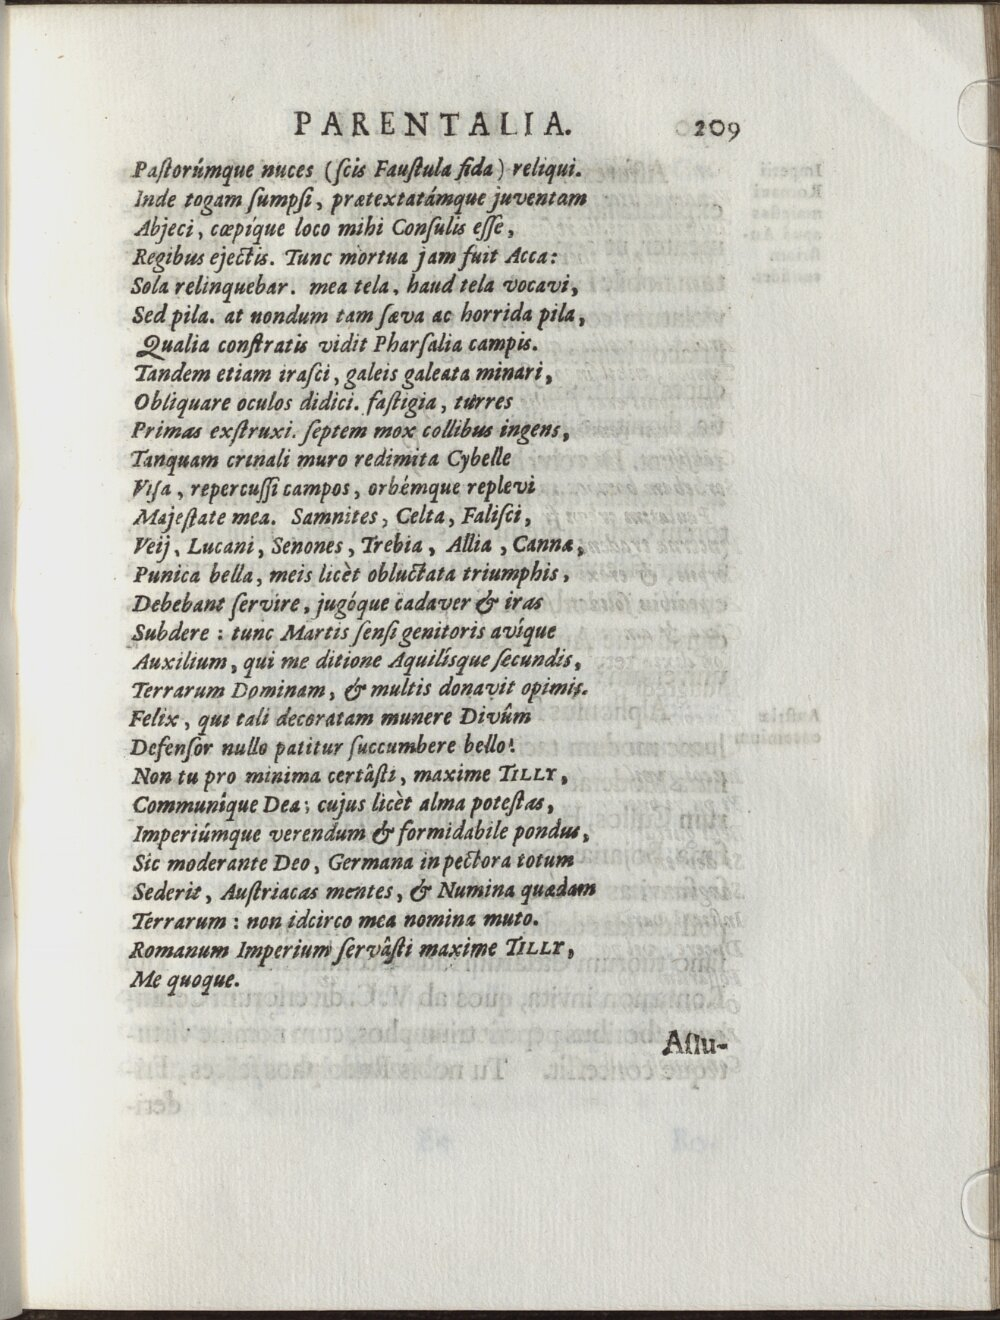 PARENTALIA. 209
Paſtorúmque nuces (ſcis Fauſtula fida) reliqui.
Inde togam ſumpſi, prætextatámque juventam
Abjeci, cœpíque loco mihi Conſulis eſſe,
Regibus ejectis. Tunc mortua jam fuit Acca:
Sola relinquebar. mea tela, haud tela vocavi,
Sed pila. at nondum tam ſæva ac horrida pila,
Qualia conſtratis vidit Pharſalia campis.
Tandem etiam iraſci, galeis galeata minari,
Obliquare oculos didici. faſtigia, turres
Primas exſtruxi. ſeptem mox collibus ingens,
Tanquam crinali muro redimita Cybelle
Viſa, repercuſſi campos, orbémque replevi
Majeſtate mea. Samnites, Celta, Faliſci,
Veij, Lucani, Senones, Trebia, Allia, Cannæ,
Punica bella, meis licèt obluctata triumphis,
Debebant ſervire, jugóque cadaver & iras
Subdere: tunc Martis ſenſi genitoris avíque
Auxilium, qui me ditione Aquilíſque ſecundis,
Terrarum Dominam, & multis donavit opimis.
Felix, qui tali decoratam munere Divûm
Defenſor nullo patitur ſuccumbere bello!
Non tu pro minima certâſti, maxime TILLY,
Communíque Dea; cujus licèt alma poteſtas,
Imperiúmque verendum & formidabile pondus,
Sic moderante Deo, Germana in pectora totum
Sederit, Auſtriacas mentes, & Numina quædam
Terrarum: non idcirco mea nomina muto.
Romanum Imperium ſervâſti maxime TILLY,
Me quoque.
Aſſu-